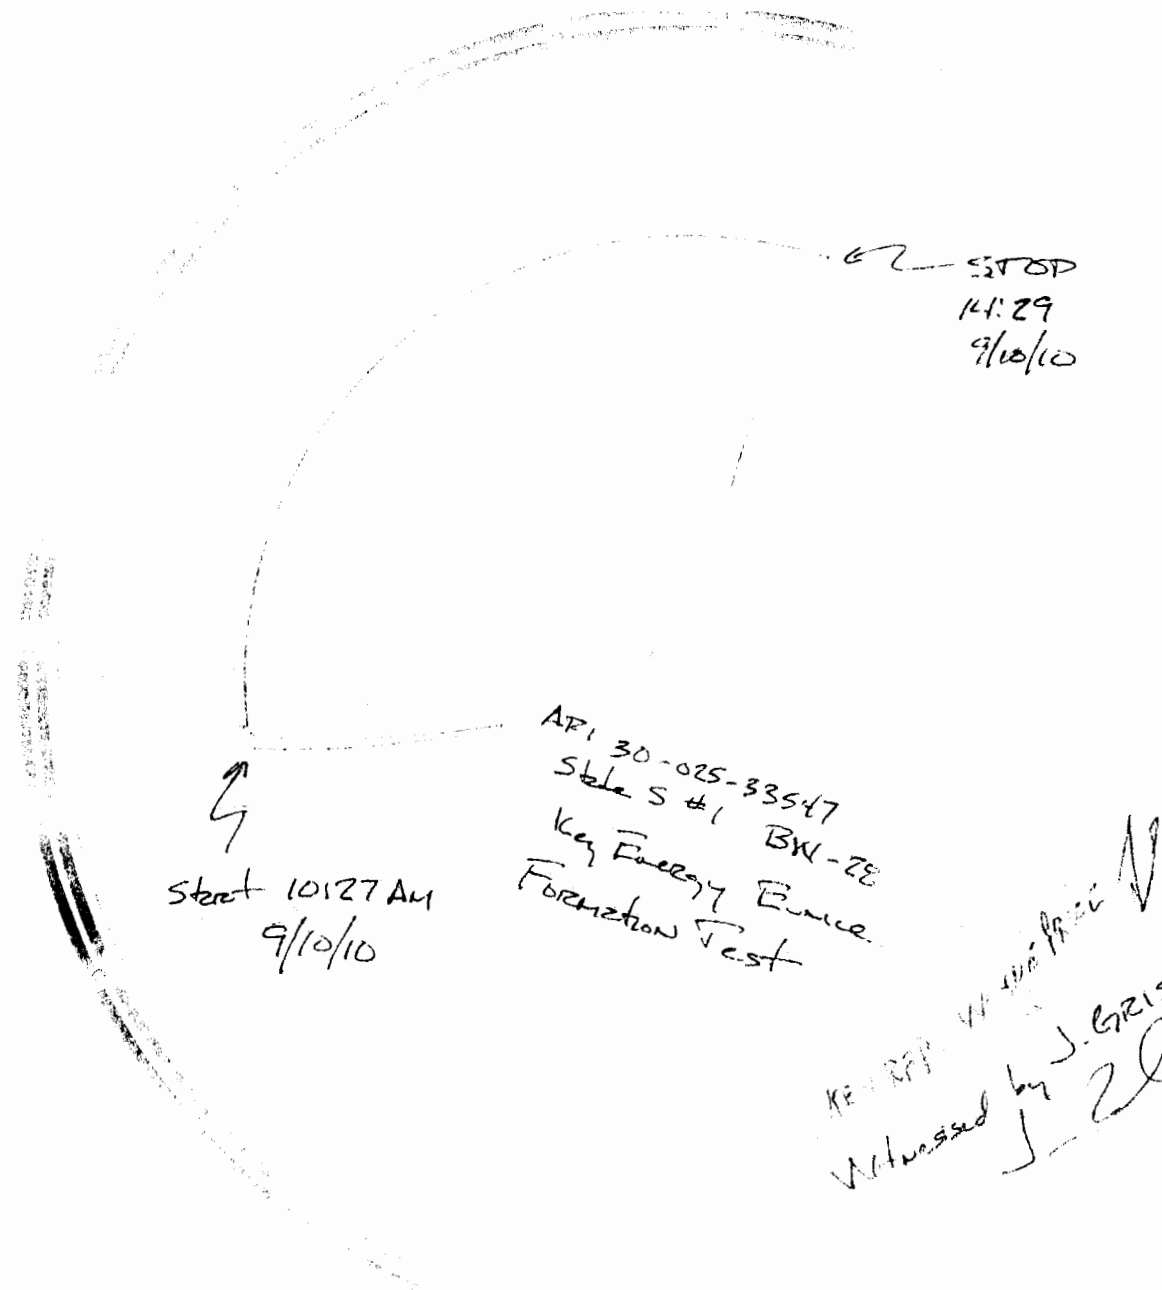 STOP
14:29
9/10/10
API 30-025-33547
State S #1 BW-28
Key Energy Eunice
Formation Test
Start 10:27 AM
9/10/10
KEY REP.
Witnessed by J. GRIS